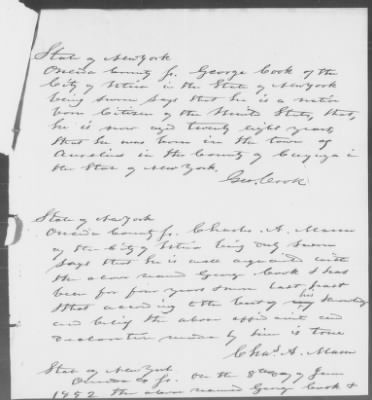 State of New York
Oneida County ss. George Cook of the
City of Utica in the State of New York
being sworn says that he is a native
born Citizen of the United States, that
he is now aged twenty eight years
that he was born in the town of
Aurelius in the County of Cayuga in
the State of New York.
Geo. Cook
State of New York
Oneida County ss. Charles A. Mann
of the City of Utica being duly sworn
says that he is well acquainted with
the above named George Cook & has
been for four years & more last past
that according to the best of his knowledge
and belief the above affidavit and
declaration made by him is true
Chas. A. Mann
State of New York
Oneida Co ss. On the 8th day of Jany
1852 the above named George Cook &